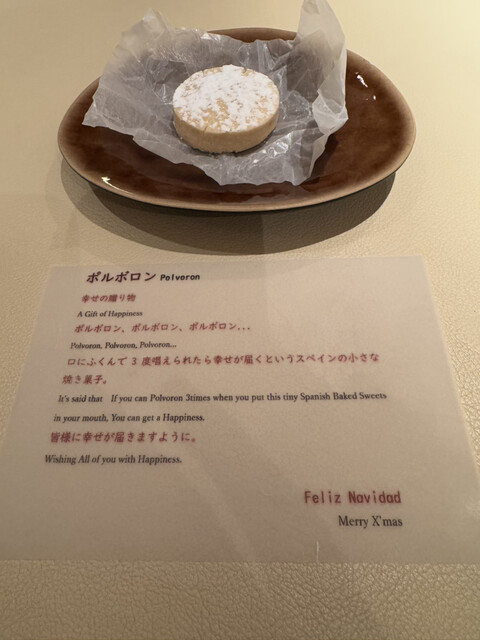 ポルボロン Polvoron
幸せの贈り物
A Gift of Happiness
ポルボロン、ポルボロン、ポルボロン...
Polvoron, Polvoron, Polvoron...
口にふくんで 3 度唱えられたら幸せが届くというスペインの小さな
焼き菓子。
It's said that If you can Polvoron 3times when you put this tiny Spanish Baked Sweets
in your mouth, You can get a Happiness.
皆様に幸せが届きますように。
Wishing All of you with Happiness.
Feliz Navidad
Merry X'mas